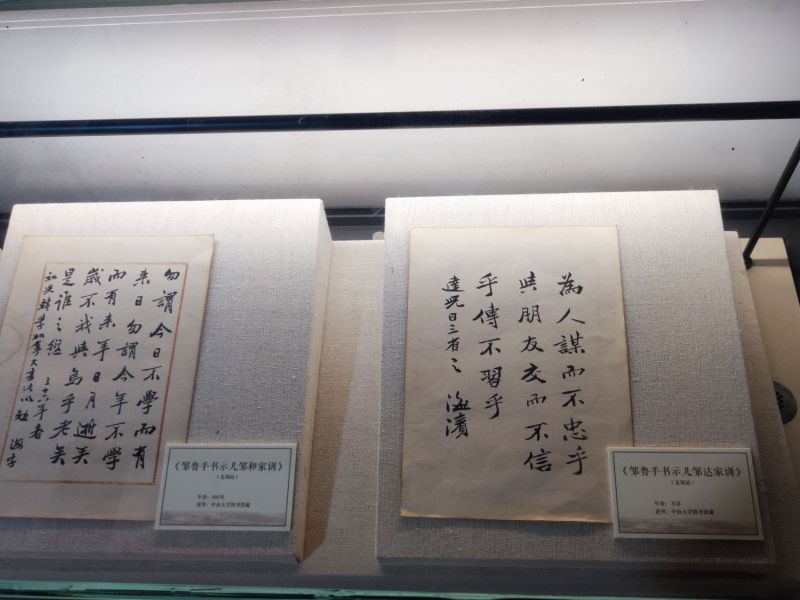 勿謂今日不學而有
来日勿謂今年不學
而有来年日月逝矣
歲不我與烏乎老矣
是誰之愆 三六年春
和兒
《邹鲁手书示儿邹和家训》
（复制品）
年份：1947年
说明：中山大学图书馆藏
為人謀而不忠乎
與朋友交而不信
乎傳不習乎
達兒日三省之 海濱
《邹鲁手书示儿邹达家训》
（复制品）
年份：不详
说明：中山大学图书馆藏